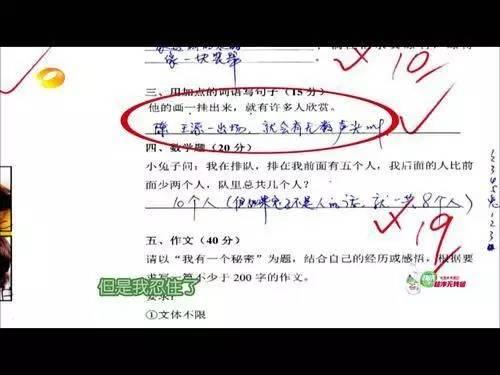 像一块
10
三、用加点的词语写句子（15 分）
他的画一挂出来，就有许多人欣赏。
王源一出场，就会有无数声尖叫
四、数学题（20 分）
小兔子问：我在排队，排在我前面有五个人，我后面的人比前
面少两个人，队里总共几个人？
10个人（但如果兔子不是人的话，就一共8个人）
19
1
2
3
4
5
兔
1
2
3
五、作文（40 分）
请以“我有一个秘密”为题，结合自己的经历或感悟，根据要
求写一篇不少于 200 字的作文。
但是我忍住了
要求：
①文体不限
超净无残留